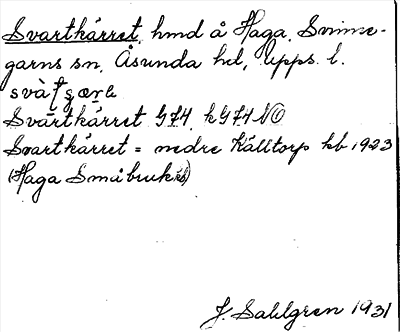 Svartkärret, hmd å Haga, Svinne-
garns sn, Åsunda hd, Upps. l.
Svartkärret G74, k G74 NO
Svartkärret = nedre Källtorp kb 1923
(Haga Småbruk)
J. Sahlgren 1931